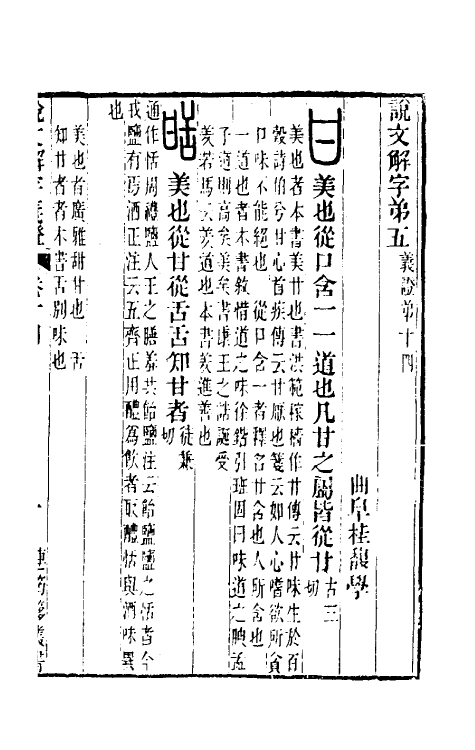 說文解字弟五 義證弟十四
曲阜桂馥學
甘 美也從口含一一道也凡甘之屬皆從甘 古三切
美也者本書美甘也書洪範稼穡作甘傳云甘味生於百
穀詩伯兮甘心首疾傳云甘厭也箋云如人心嗜欲所貪
口味不能絕也 從口含一者釋名甘含也人所含也
一道也者本書敘惜道之味徐鍇引班固曰味道之腴孟
子道則高矣美矣書康王之誥誕受
羑若馬云羑道也本書羑進善也
𤯍 美也從甘從舌舌知甘者 徒兼切
通作恬周禮鹽人王之膳羞共飴鹽注云飴鹽鹽之恬者今
戎鹽有焉酒正注云五齊正用醴為飲者取醴恬與酒味異
也
美也者廣雅甜甘也 舌
知甘者者本書舌別味也
說文解字義證 卷十四
一 連筠簃叢書